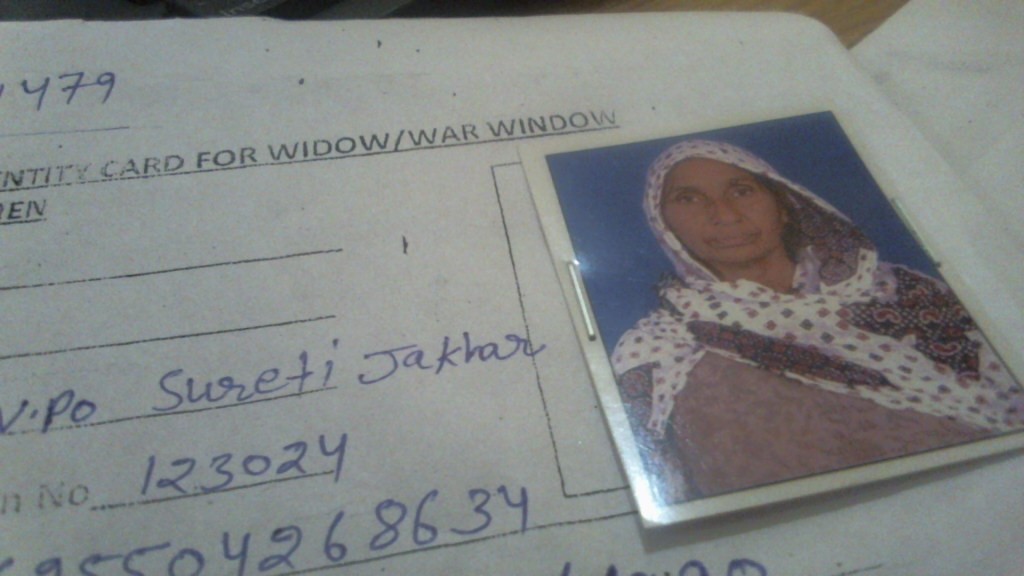 479
ENTITY CARD FOR WIDOW/WAR WINDOW
EN
V.Po Sureti Jakhar
n No 123024
95504268634